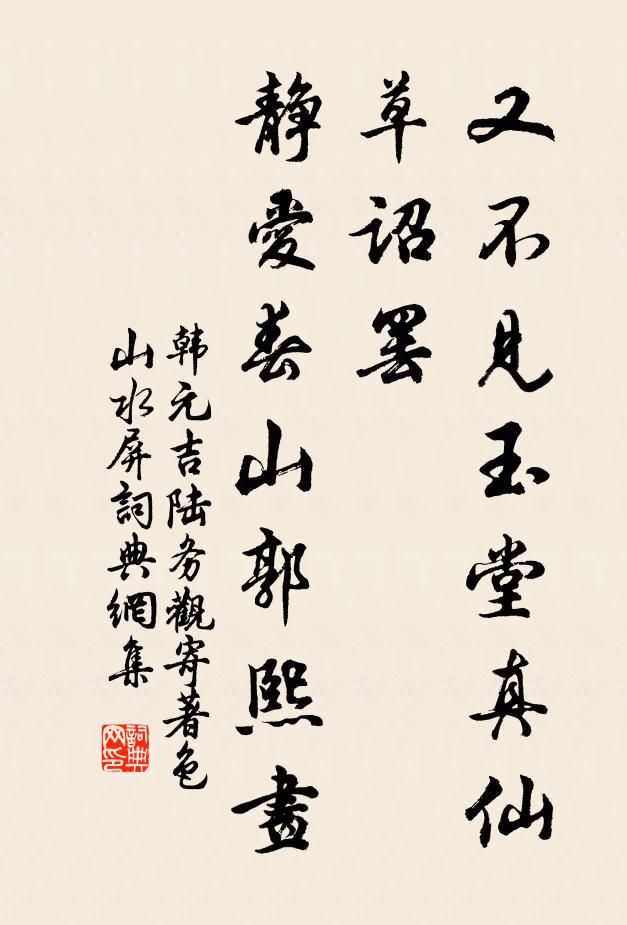 又不見玉堂真仙
草詔罢
静愛春山郭熙畫
韩元吉陆务觀寄著色
山水屏詞典網集
詞典
网印